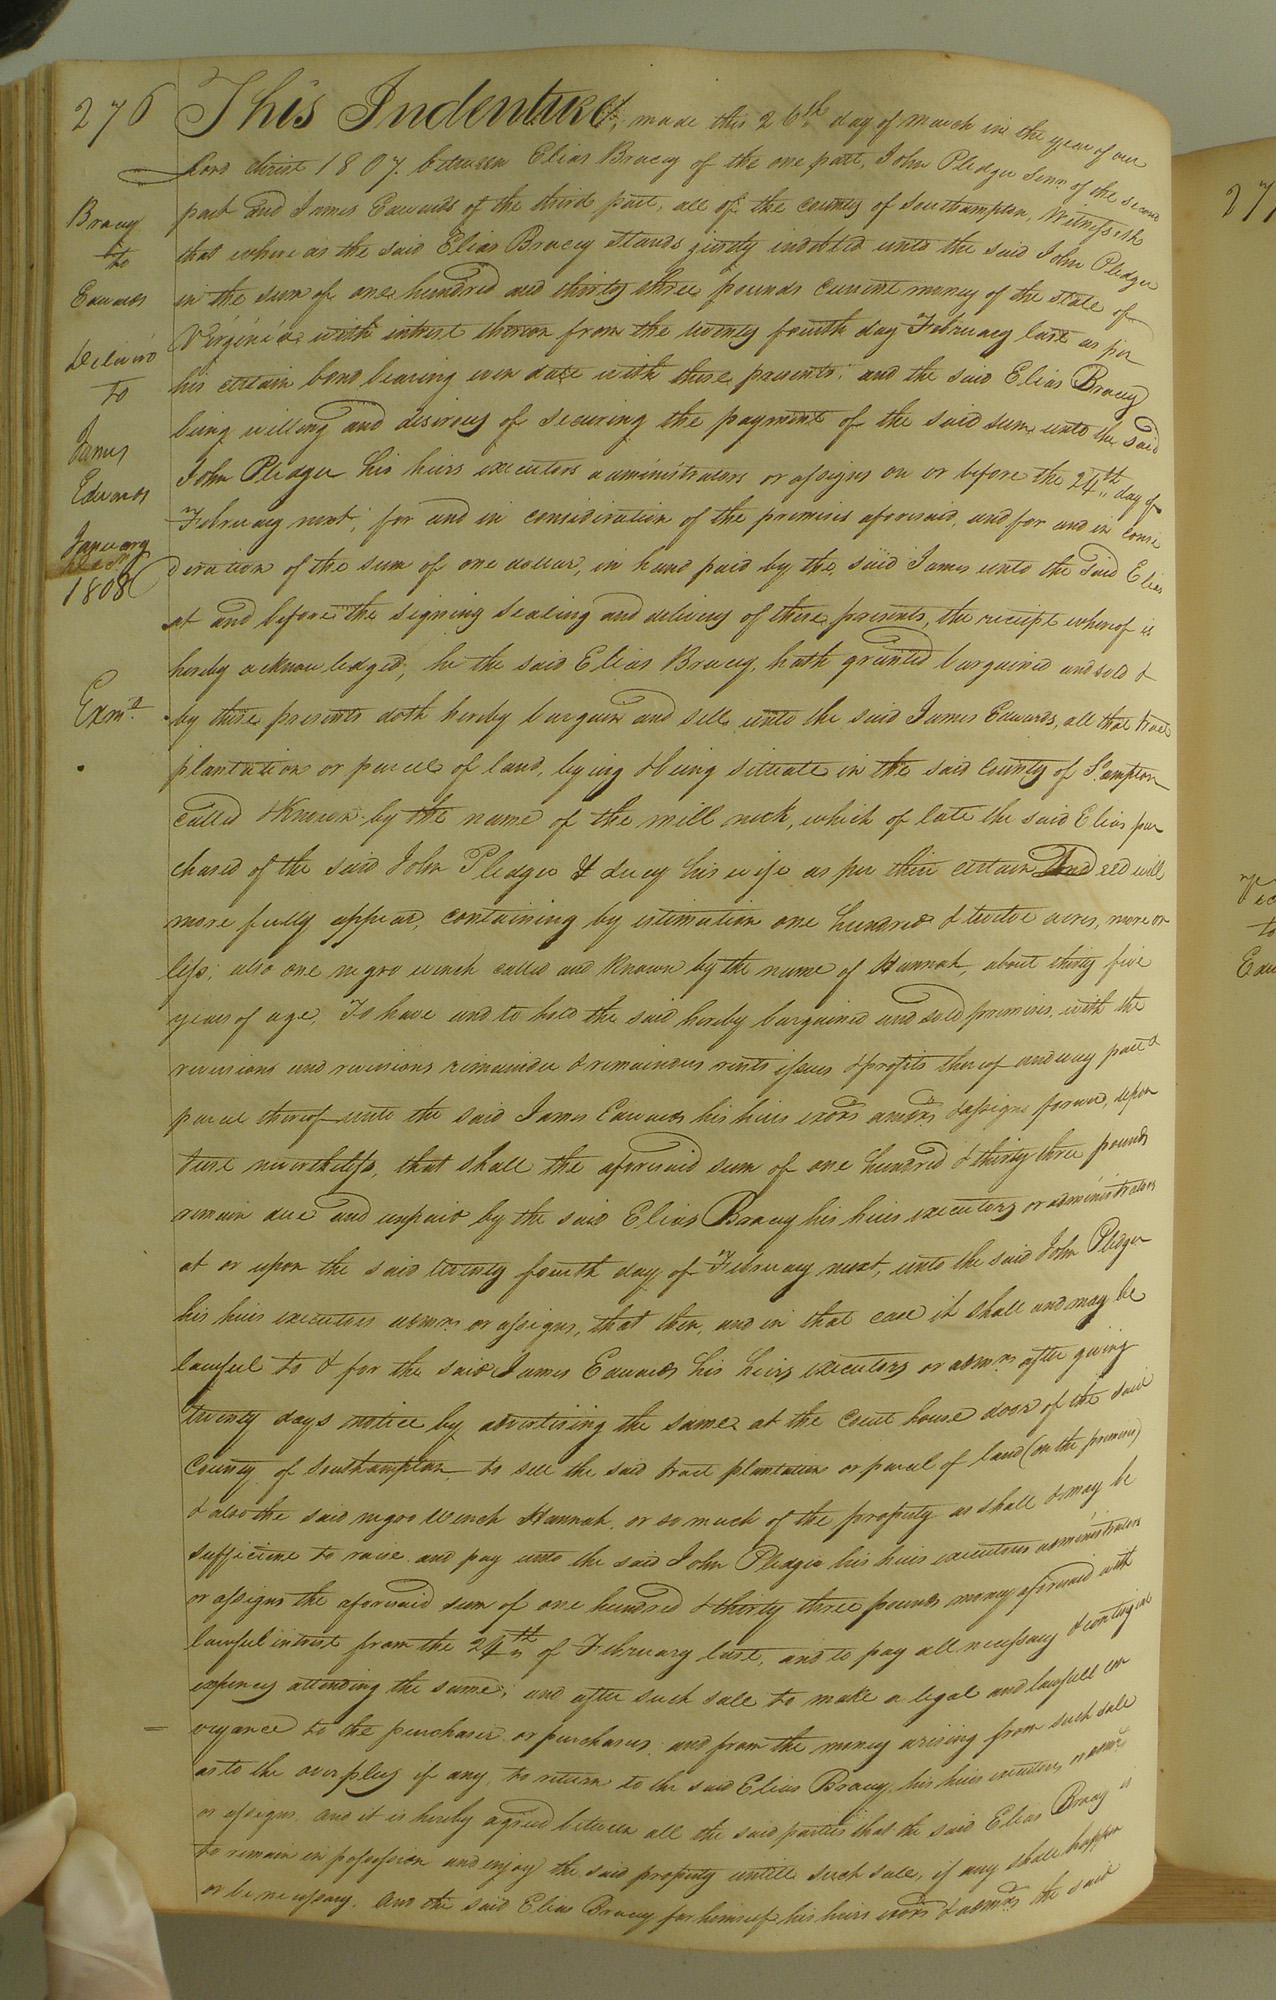 276
Bracy
to
Edwards
Deliver'd
to
James
Edwards
January
1808
Exmd.
This Indenture, made this 26th day of march in the year of our
Lord Christ 1807. between Elias Bracey of the one part, John Pledger Senr. of the second
part and James Edwards of the third part, all of the county of Southampton, Witnesseth
that where as the said Elias Bracey Stands justly indebted unto the said John Pledger
in the sum of one hundred and thirty three pounds Current money of the state of
Virginia with intrest thereon from the twenty fourth day February last as per
his certain bond bearing even date with these presents; and the said Elias Bracey
being willing and desirous of securing the payment of the said sum unto the said
John Pledger his heirs executors administrators or assigns on or before the 24th day of
February next; for and in consideration of the premises aforesaid, and for and in consi
deration of the sum of one dollar, in hand paid by the said James unto the said Elias
at and before the signing sealing and delivery of these presents, the receipt whereof is
hereby acknowledged, he the said Elias Bracey, hath granted bargained and sold &
by these presents doth hereby bargain and sell unto the said James Edwards, all that tract
plantation or parcel of land, lying & being situate in the said County of S.ampton
called & Known by the name of the mill neck, which of late the said Elias pur
chased of the said John Pledger & Lucy his wife as per their certain deed will
more fully appear, containing by estimation one hundred & twelve acres, more or
less; also one negro wench called and Known by the name of Hannah, about thirty five
years of age, To have and to hold the said hereby bargained and sold premises, with the
revisions and revisions remainder & remainders rents issues & profits thereof and evey part &
parcel thereof unto the said James Edwards his heirs exors. admors. & assigns forever, upon
trust nevertheless, that shall the aforesaid sum of one hundred & thirty three pounds
remain due and unpaid by the said Elias Bracey his heirs executors or administrators
at or upon the said twenty fourth day of February next, unto the said John Pledger
his heirs executors admrs. or assigns, that then, and in that case it shall and may be
lawful to & for the said James Edwards his heirs executors or admrs. after giving
twenty days notice by advertising the same at the Court house door of the said
County of Southampton to sell the said tract plantation or parcel of land (on the premises)
& also the said negro Wench Hannah, or so much of the property as shall & may be
sufficient to raise and pay unto the said John Pledger his heirs executors administrators
or assigns the aforesaid sum of one hundred & thirty three pounds money aforesaid with
lawful intrest from the 24th of February last, and to pay all necessary & contingent
expences attending the same; and after such sale to make a legal and lawfull con
veyance to the purchaser or purchasers; and from the money arising from such sale
as to the overpluss if any, to return to the said Elias Bracey his heirs executors, admrs.
or assigns, and it is hereby agreed between all the said parties that the said Elias Bracey is
to remain in possession and enjoy the said property untill such sale, if any shall happen
or be necessary. And the said Elias Bracey for himself his heirs exors & admors. the said